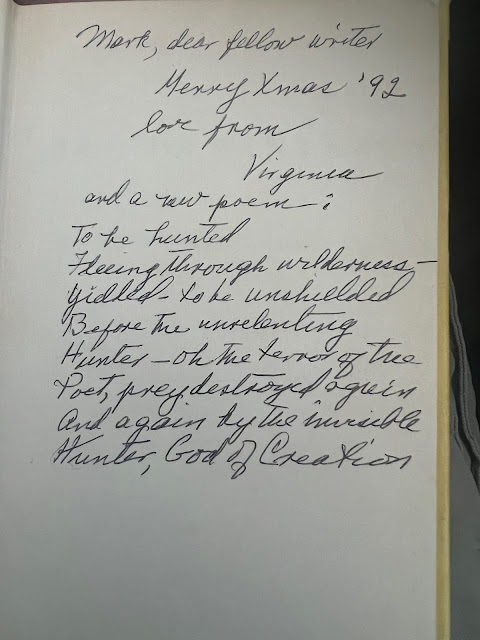 Mark, dear fellow writer
Merry Xmas '92
love from
Virginia
and a raw poem:
To be hunted
Fleeing through wilderness—
Yielded - to be unshielded
Before the unrelenting
Hunter — oh the terror of the
Poet, prey destroyed again
And again by the invisible
Hunter, God of Creation